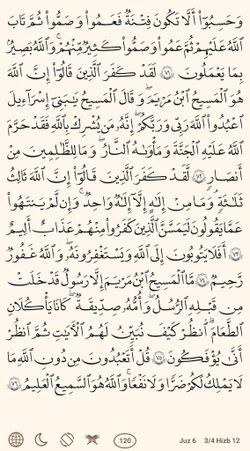 وَحَسِبُوٓاْ أَلَّا تَكُونَ فِتۡنَةٞ فَعَمُواْ وَصَمُّواْ ثُمَّ تَابَ
ٱللَّهُ عَلَيۡهِمۡ ثُمَّ عَمُواْ وَصَمُّواْ كَثِيرٞ مِّنۡهُمۡۚ وَٱللَّهُ بَصِيرُۢ
بِمَا يَعۡمَلُونَ ٧١ لَقَدۡ كَفَرَ ٱلَّذِينَ قَالُوٓاْ إِنَّ ٱللَّهَ
هُوَ ٱلۡمَسِيحُ ٱبۡنُ مَرۡيَمَۖ وَقَالَ ٱلۡمَسِيحُ يَٰبَنِيٓ إِسۡرَٰٓءِيلَ
ٱعۡبُدُواْ ٱللَّهَ رَبِّي وَرَبَّكُمۡۖ إِنَّهُۥ مَن يُشۡرِكۡ بِٱللَّهِ فَقَدۡ حَرَّمَ
ٱللَّهُ عَلَيۡهِ ٱلۡجَنَّةَ وَمَأۡوَىٰهُ ٱلنَّارُۖ وَمَا لِلظَّٰلِمِينَ مِنۡ
أَنصَارٖ ٧٢ لَّقَدۡ كَفَرَ ٱلَّذِينَ قَالُوٓاْ إِنَّ ٱللَّهَ ثَالِثُ
ثَلَٰثَةٖۘ وَمَا مِنۡ إِلَٰهٍ إِلَّآ إِلَٰهٞ وَٰحِدٞۚ وَإِن لَّمۡ يَنتَهُواْ
عَمَّا يَقُولُونَ لَيَمَسَّنَّ ٱلَّذِينَ كَفَرُواْ مِنۡهُمۡ عَذَابٌ أَلِيمٌ
٧٣ أَفَلَا يَتُوبُونَ إِلَى ٱللَّهِ وَيَسۡتَغۡفِرُونَهُۥۚ وَٱللَّهُ غَفُورٞ
رَّحِيمٞ ٧٤ مَّا ٱلۡمَسِيحُ ٱبۡنُ مَرۡيَمَ إِلَّا رَسُولٞ قَدۡ خَلَتۡ
مِن قَبۡلِهِ ٱلرُّسُلُ وَأُمُّهُۥ صِدِّيقَةٞۖ كَانَا يَأۡكُلَانِ
ٱلطَّعَامَۗ ٱنظُرۡ كَيۡفَ نُبَيِّنُ لَهُمُ ٱلۡأٓيَٰتِ ثُمَّ ٱنظُرۡ
أَنَّىٰ يُؤۡفَكُونَ ٧٥ قُلۡ أَتَعۡبُدُونَ مِن دُونِ ٱللَّهِ مَا
لَا يَمۡلِكُ لَكُمۡ ضَرّٗا وَلَا نَفۡعٗاۚ وَٱللَّهُ هُوَ ٱلسَّمِيعُ ٱلۡعَلِيمُ ٧٦
120 Juz 6 3/4 Hizb 12